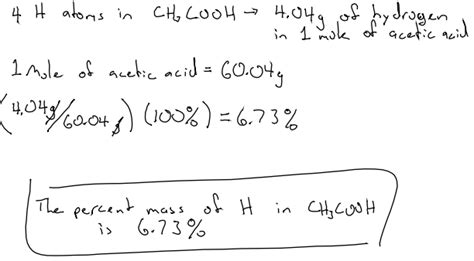 4 H atoms in CH₃COOH → 4.04g of hydrogen
in 1 mole of acetic acid
1 Mole of acetic acid = 60.04g
(4.04g/60.04g) (100%) = 6.73%
The percent mass of H in CH₃COOH
is 6.73%